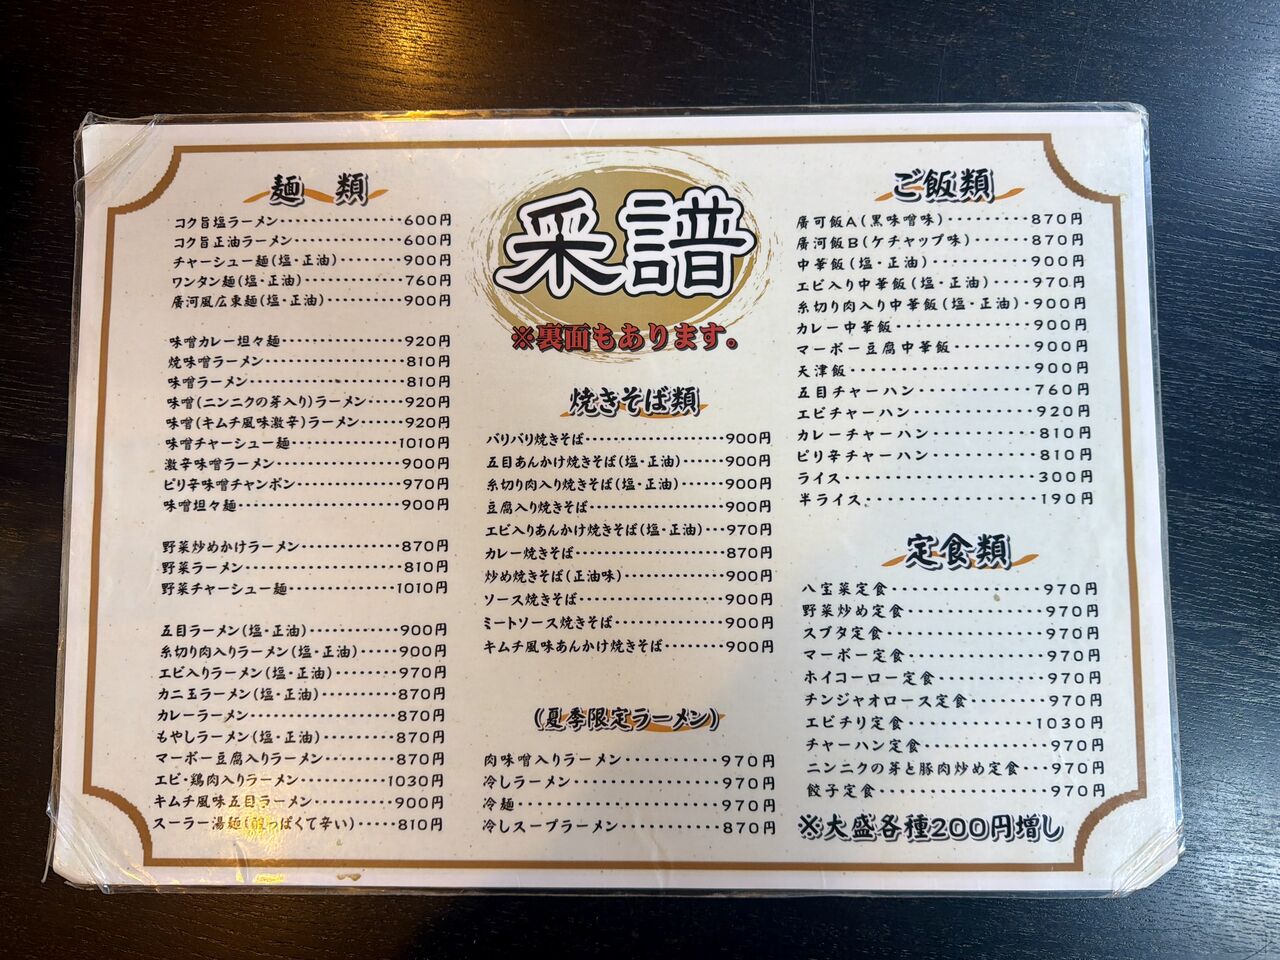 麺 類
コク旨塩ラーメン・・・・・・・・・・・・600円
コク旨正油ラーメン・・・・・・・・・・・600円
チャーシュー麺(塩・正油)・・・・・・・900円
ワンタン麺(塩・正油)・・・・・・・・・・760円
廣河風広東麺(塩・正油)・・・・・・・・900円
味噌カレー坦々麺・・・・・・・・・・・・920円
焼味噌ラーメン・・・・・・・・・・・・・・810円
味噌ラーメン・・・・・・・・・・・・・・・・810円
味噌(ニンニクの芽入り)ラーメン・・・・920円
味噌(キムチ風味激辛)ラーメン・・・・・920円
味噌チャーシュー麺・・・・・・・・・・・1010円
激辛味噌ラーメン・・・・・・・・・・・・・900円
ピリ辛味噌チャンポン・・・・・・・・・・・970円
味噌坦々麺・・・・・・・・・・・・・・・・・900円
野菜炒めかけラーメン・・・・・・・・・・870円
野菜ラーメン・・・・・・・・・・・・・・・・810円
野菜チャーシュー麺・・・・・・・・・・・1010円
五目ラーメン(塩・正油)・・・・・・・・・900円
糸切り肉入りラーメン(塩・正油)・・・・900円
エビ入りラーメン(塩・正油)・・・・・・・970円
カニ玉ラーメン(塩・正油)・・・・・・・・870円
カレーラーメン・・・・・・・・・・・・・・・870円
もやしラーメン(塩・正油)・・・・・・・・870円
マーボー豆腐入りラーメン・・・・・・・・870円
エビ・鶏肉入りラーメン・・・・・・・・・1030円
キムチ風味五目ラーメン・・・・・・・・・900円
スーラー湯麺(酸っぱくて辛い)・・・・・810円
采譜
※裏面もあります。
焼きそば類
パリパリ焼きそば・・・・・・・・・・・・・900円
五目あんかけ焼きそば(塩・正油)・・・・900円
糸切り肉入り焼きそば(塩・正油)・・・・900円
豆腐入り焼きそば・・・・・・・・・・・・・900円
エビ入りあんかけ焼きそば(塩・正油)・・970円
カレー焼きそば・・・・・・・・・・・・・・870円
炒め焼きそば(正油味)・・・・・・・・・・900円
ソース焼きそば・・・・・・・・・・・・・・900円
ミートソース焼きそば・・・・・・・・・・・900円
キムチ風味あんかけ焼きそば・・・・・・900円
(夏季限定ラーメン)
肉味噌入りラーメン・・・・・・・・・・970円
冷しラーメン・・・・・・・・・・・・・・・970円
冷麺・・・・・・・・・・・・・・・・・・・・970円
冷しスープラーメン・・・・・・・・・・870円
ご飯類
廣可飯A(黒味噌味)・・・・・・・・・870円
廣河飯B(ケチャップ味)・・・・・・870円
中華飯(塩・正油)・・・・・・・・・・900円
エビ入り中華飯(塩・正油)・・・・970円
糸切り肉入り中華飯(塩・正油)・900円
カレー中華飯・・・・・・・・・・・・・900円
マーボー豆腐中華飯・・・・・・・・900円
天津飯・・・・・・・・・・・・・・・・・900円
五目チャーハン・・・・・・・・・・・・760円
エビチャーハン・・・・・・・・・・・・920円
カレーチャーハン・・・・・・・・・・・810円
ピリ辛チャーハン・・・・・・・・・・・810円
ライス・・・・・・・・・・・・・・・・・・300円
半ライス・・・・・・・・・・・・・・・・・190円
定食類
八宝菜定食・・・・・・・・・・・・・・970円
野菜炒め定食・・・・・・・・・・・・・970円
スブタ定食・・・・・・・・・・・・・・・970円
マーボー定食・・・・・・・・・・・・・970円
ホイコーロー定食・・・・・・・・・・・970円
チンジャオロース定食・・・・・・・・970円
エビチリ定食・・・・・・・・・・・・・1030円
チャーハン定食・・・・・・・・・・・・970円
ニンニクの芽と豚肉炒め定食・・・970円
餃子定食・・・・・・・・・・・・・・・・970円
※大盛各種200円増し